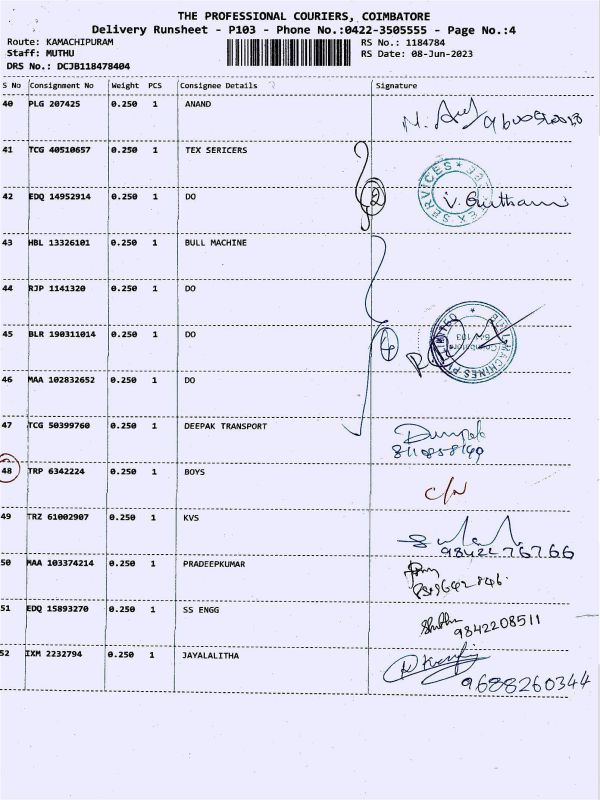 THE PROFESSIONAL COURIERS, COIMBATORE
Delivery Runsheet - P103 - Phone No.:0422-3505555 - Page No.:4
Route: KAMACHIPURAM RS No.: 1184784
Staff: MUTHU RS Date: 08-Jun-2023
DRS No.: DCJB118478404
S No Consignment No Weight PCS Consignee Details Signature
40 PLG 207425 0.250 1 ANAND
41 TCG 40510657 0.250 1 TEX SERICERS
42 EDQ 14952914 0.250 1 DO 2 SERVICES
43 HBL 13326101 0.250 1 BULL MACHINE
44 RJP 1141320 0.250 1 DO
45 BLR 190311014 0.250 1 DO 4
46 MAA 102832652 0.250 1 DO
47 TCG 50399760 0.250 1 DEEPAK TRANSPORT
48 TRP 6342224 0.250 1 BOYS C/N
49 TRZ 61002907 0.250 1 KVS
9842276766
50 MAA 103374214 0.250 1 PRADEEPKUMAR
51 EDQ 15893270 0.250 1 SS ENGG
9842208511
52 IXM 2232794 0.250 1 JAYALALITHA
9688260344